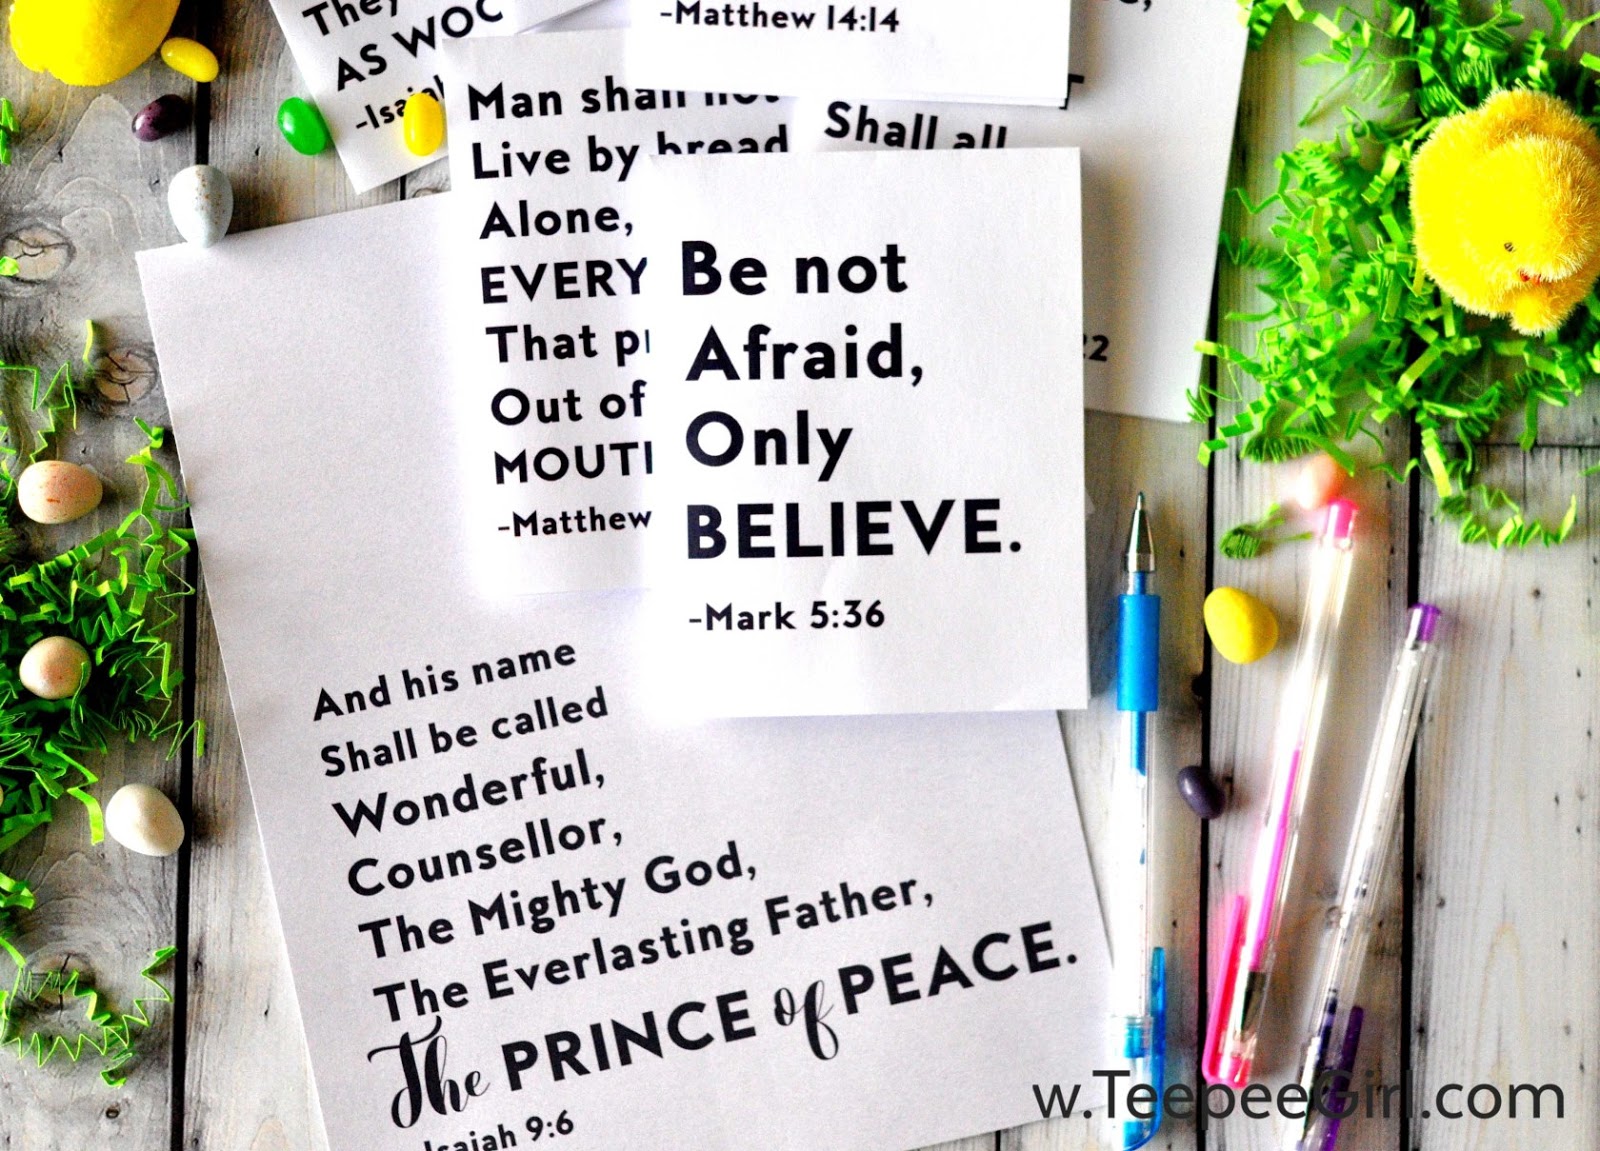 They
AS WOC
-Isaiah
-Matthew 14:14
Man shall not
Live by bread
Alone,
EVERY
That
Out of
MOUTH
-Matthew
Shall all
22
Be not
Afraid,
Only
BELIEVE.
-Mark 5:36
And his name
Shall be called
Wonderful,
Counsellor,
The Mighty God,
The Everlasting Father,
The PRINCE of PEACE.
Isaiah 9:6
w.TeepeeGirl.com